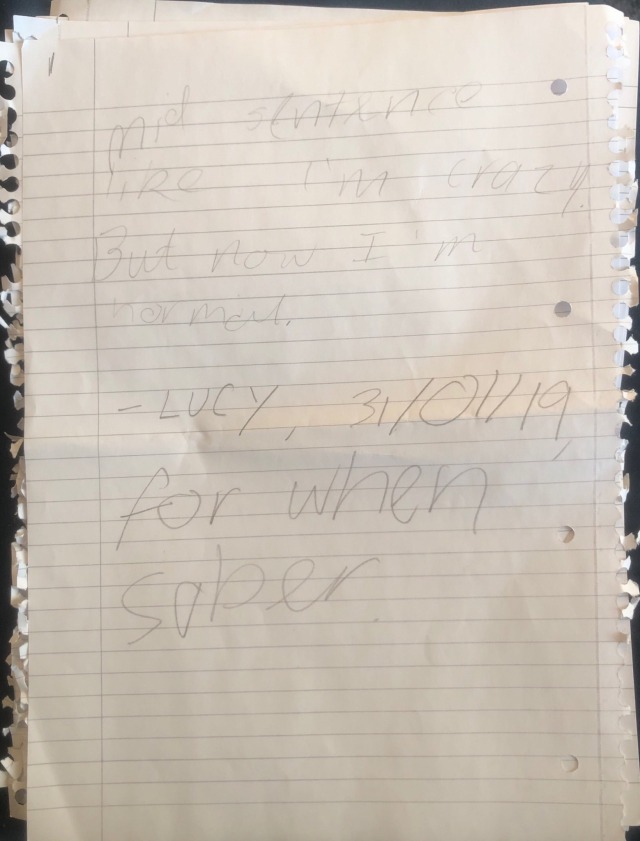 mid sentence
like I'm crazy.
But now I'm
normal.
- LUCY, 31/01/19,
for when
sober.